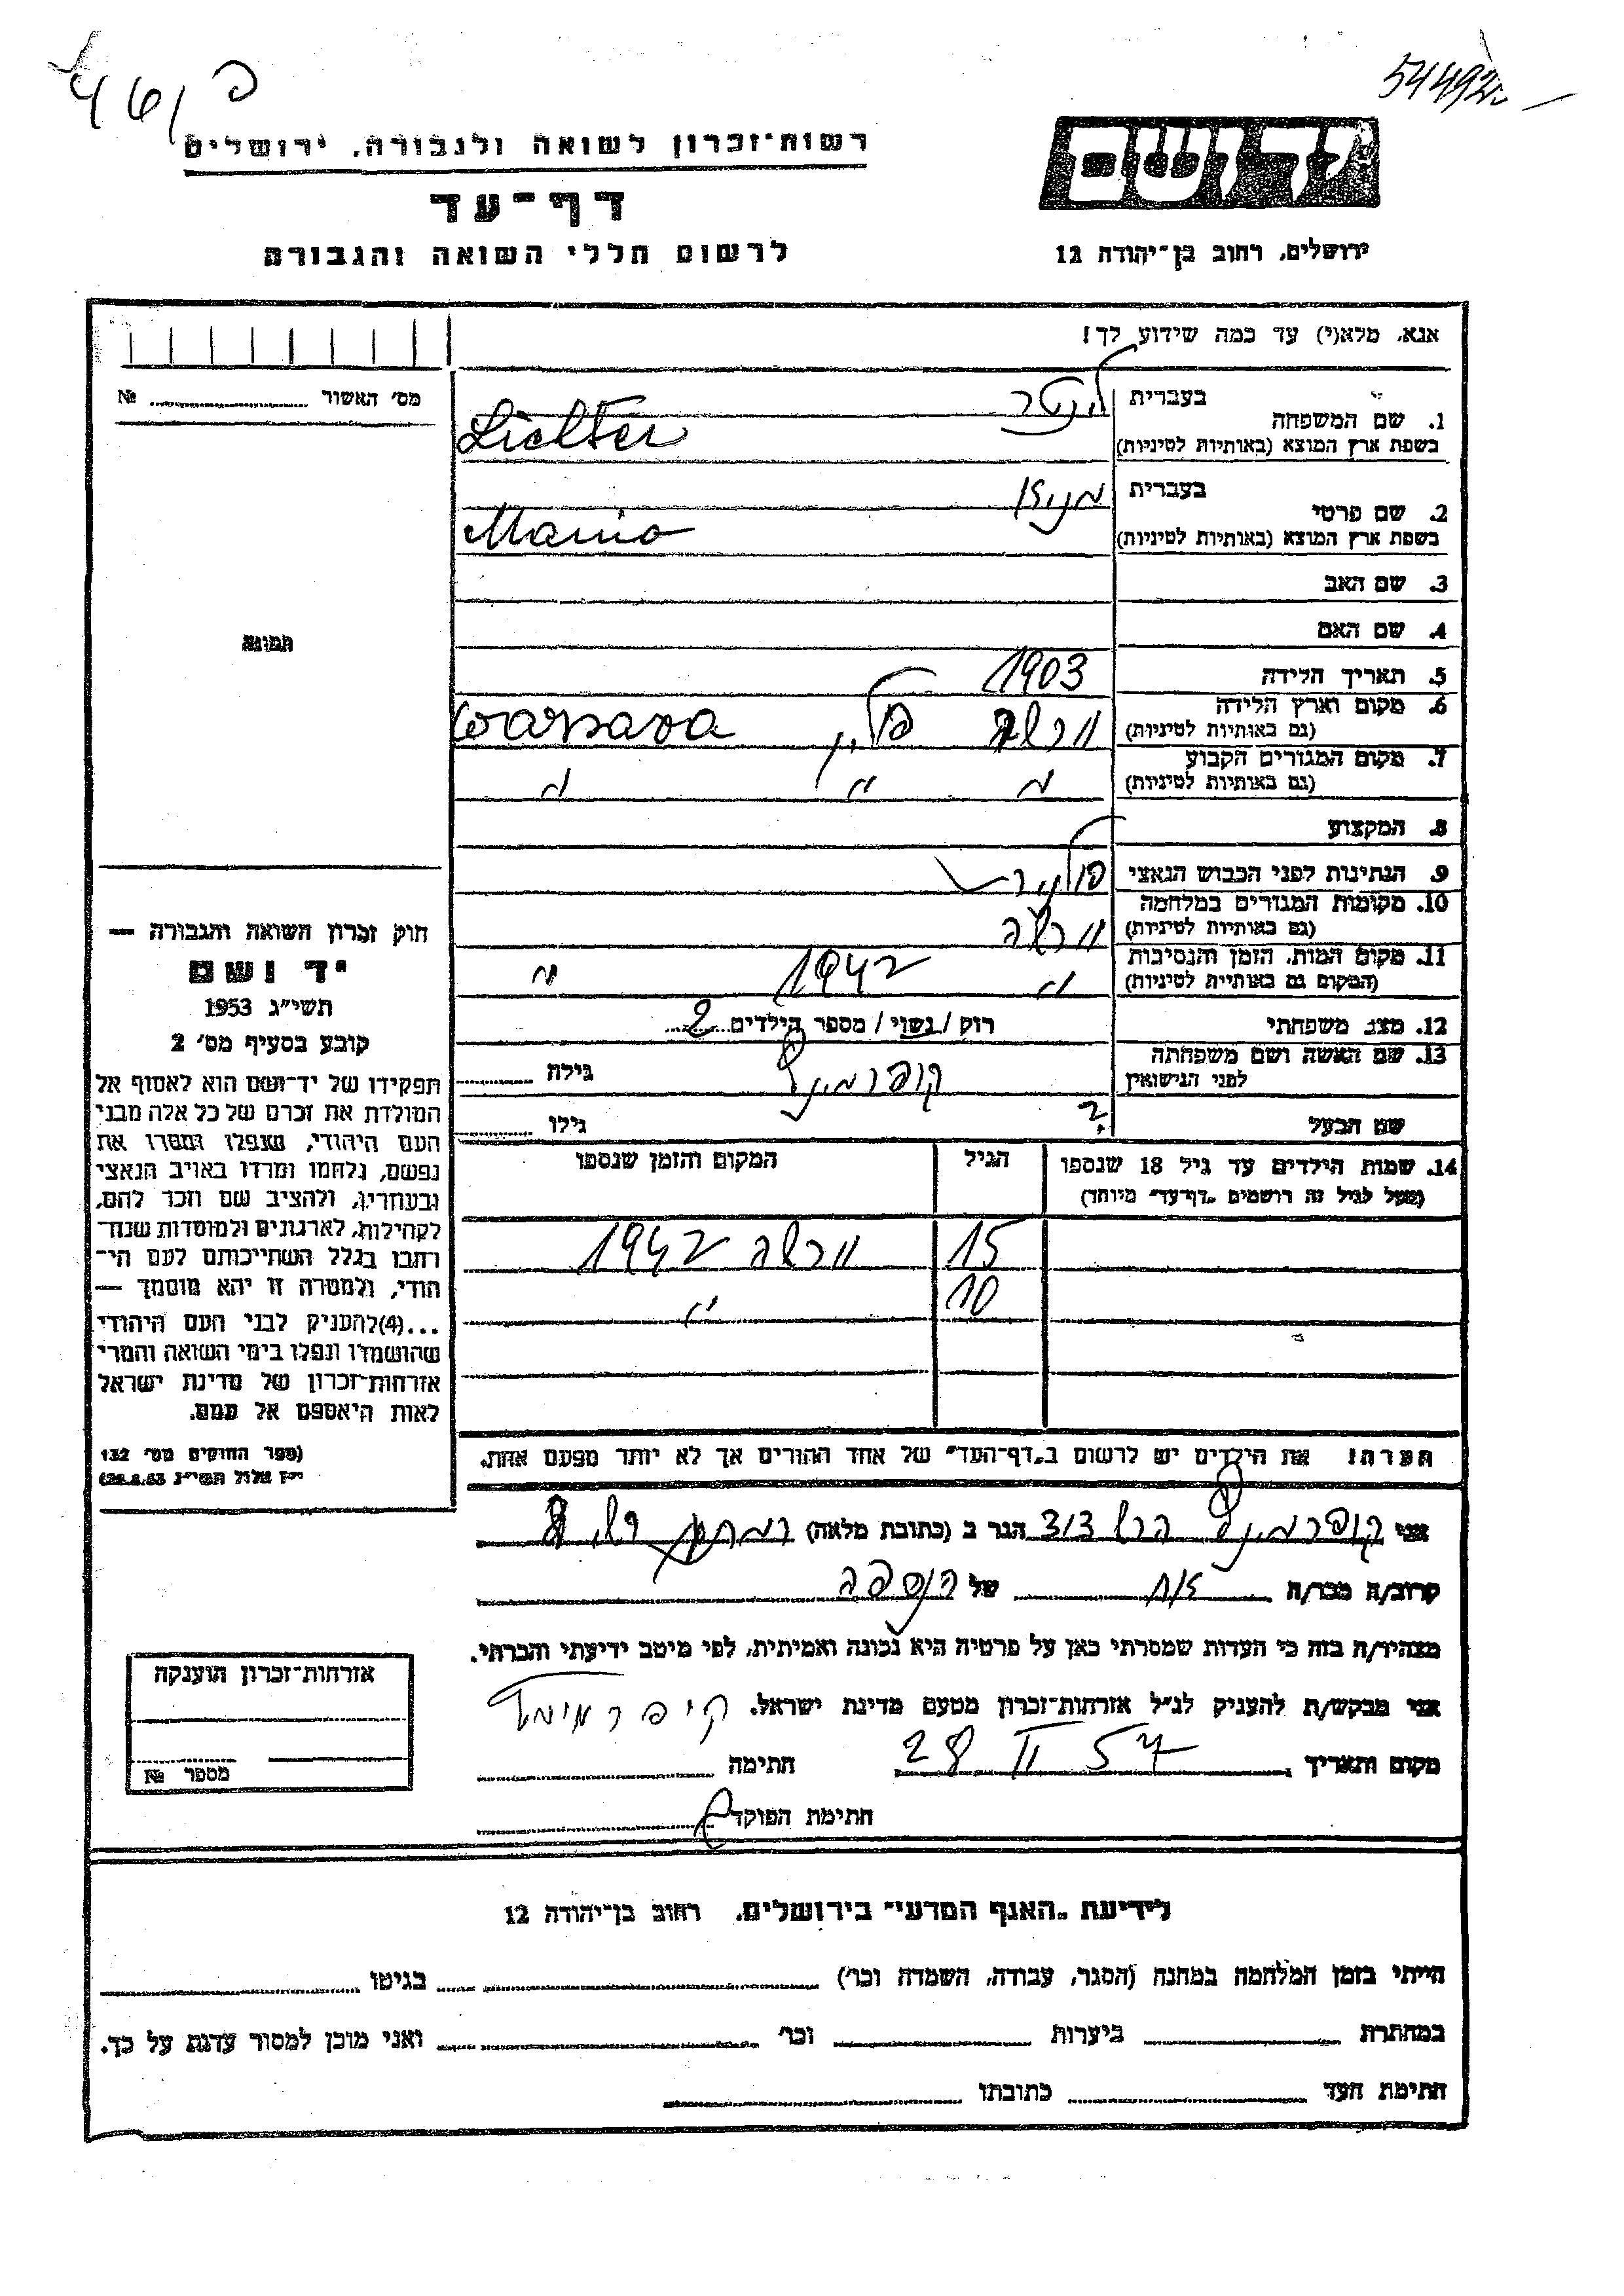 54492
רשות־זכרון לשואה ולגבורה, ירושלים
דף־עד
לרשום חללי השואה והגבורה
יד ושם
ירושלים, רחוב בן־יהודה 12
אנא, מלא(י) עד כמה שידוע לך!
מס׳ האשור № 
1. שם המשפחה
בעברית ליכטר
בשפת ארץ המוצא (באותיות לטיניות) Lichter
2. שם פרטי
בעברית מניה
בשפת ארץ המוצא (באותיות לטיניות) Mania
3. שם האב
4. שם האם
5. תאריך הלידה 1903
6. מקום וארץ הלידה ורשה פולין Warsawa
(גם באותיות לטיניות)
7. מקום המגורים הקבוע " " "
(גם באותיות לטיניות)
8. המקצוע
9. הנתינות לפני הכבוש הנאצי פולנית
10. מקומות המגורים במלחמה ורשה
(גם באותיות לטיניות)
11. מקום המות, הזמן והנסיבות " 1942 "
(המקום גם באותיית לטיניות)
12. מצב משפחתי רוק / נשוי / מספר הילדים 2
13. שם האשה ושם משפחתה
לפני הנישואין קופרמינץ גילה
שם הבעל ? גילו
14. שמות הילדים עד גיל 18 שנספו הגיל המקום והזמן שנספו
(מעל לגיל זה רושמים „דף־עד״ מיוחד)
15 ורשה 1942
10 "
הערה! את הילדים יש לרשום ב„דף־העד״ של אחד ההורים אך לא יותר מפעם אחת.
תמונה
חוק זכרון השואה והגבורה —
יד ושם
תשי״ג 1953
קובע בסעיף מס׳ 2
תפקידו של יד־ושם הוא לאסוף אל
המולדת את זכרם של כל אלה מבני
העם היהודי, שנפלו ומסרו את
נפשם, נלחמו ומרדו באויב הנאצי
ובעוזריו, ולהציב שם וזכר להם,
לקהילות, לארגונים ולמוסדות שנח־
רבו בגלל השתייכותם לעם הי־
הודי, ולמטרה זו יהא מוסמך —
...(4)להעניק לבני העם היהודי
שהושמדו ונפלו בימי השואה והמרי
אזרחות־זכרון של מדינת ישראל
לאות היאספם אל עמם.
(ספר החוקים מס׳ 132
י״ז אלול תשי״ג 28.8.53)
אני קופרמינץ הרש דוד הגר ב (כתובת מלאה)
קרוב/ה מכר/ה אח של הנספה
מצהיר/ה בזה כי העדות שמסרתי כאן על פרטיה היא נכונה ואמיתית, לפי מיטב ידיעתי והכרתי.
אני מבקש/ת להעניק לנ״ל אזרחות־זכרון מטעם מדינת ישראל.
מקום ותאריך 28 II 57 חתימה
חתימת הפוקד
אזרחות־זכרון הוענקה
מספר №
לידיעת „האגף המדעי״ בירושלים, רחוב בן־יהודה 12
הייתי בזמן המלחמה במחנה (הסגר, עבודה, השמדה וכר׳) בגיטו
במחתרת ביערות וכר׳ ואני מוכן למסור עדות על כך.
חתימת העד כתובתו